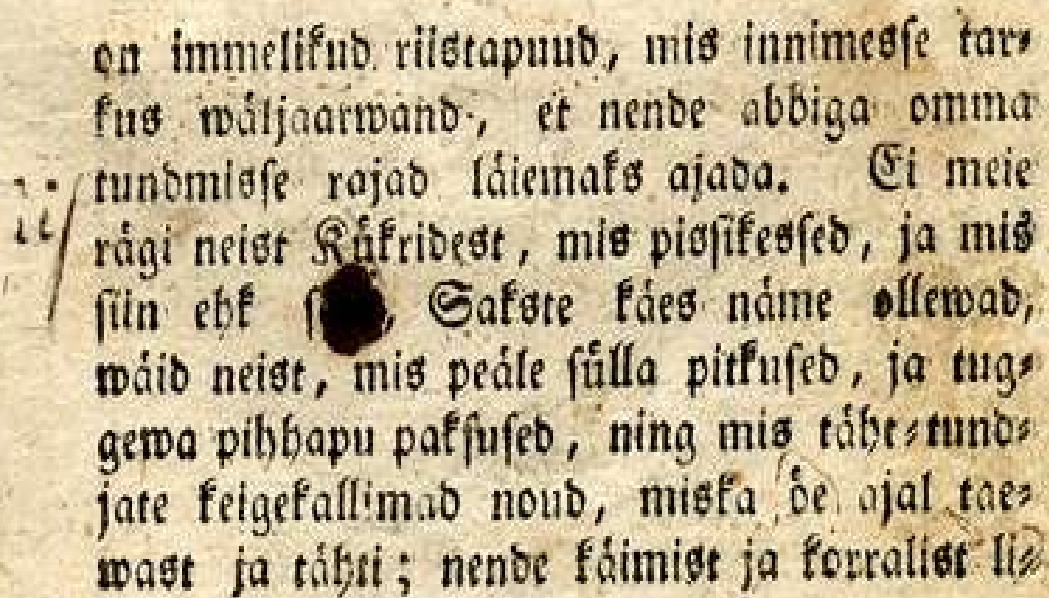 on immelikud riistapuud, mis innimesse tar⸗
kus wäljaarwand, et nende abbiga omma
tundmisse rajad läiemaks ajada. Ei meie
rägi neist Kükridest, mis pissikessed, ja mis
siin ehk Sakste käes näme ollewad,
wäid neist, mis peäle sülla pitkused, ja tug⸗
gewa pihhapu paksused, ning mis täht⸗tund⸗
jate keigekallimad noud, miska öe ajal tae⸗
wast ja tähti; nende käimist ja korralist li⸗